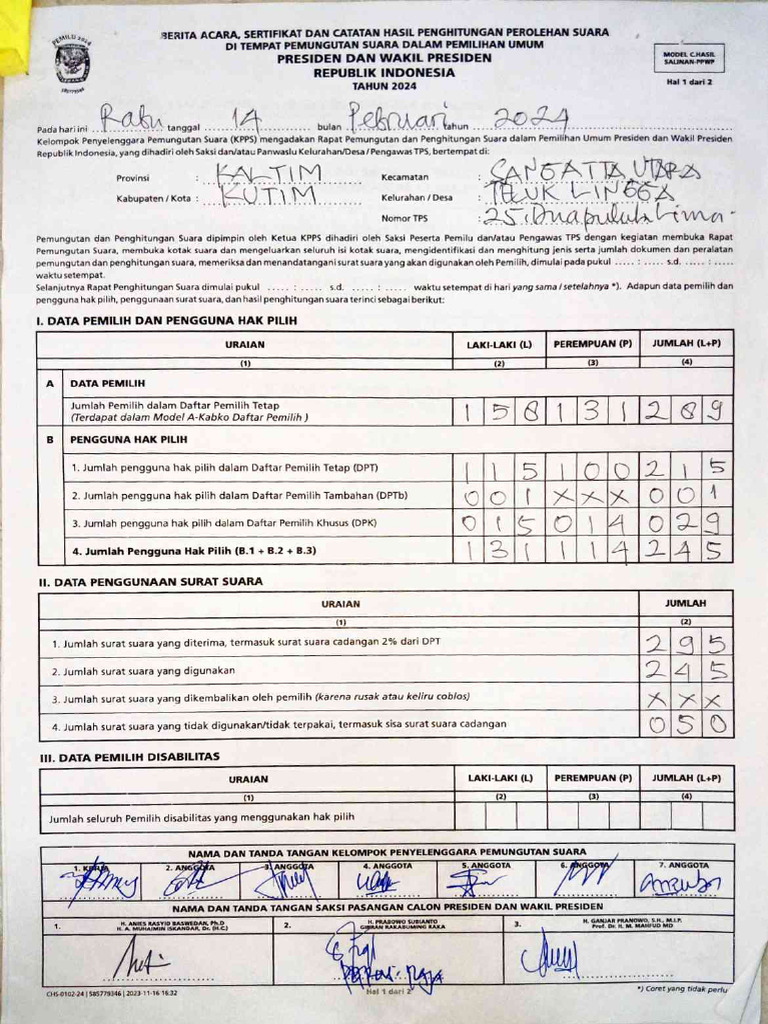 BERITA ACARA, SERTIFIKAT DAN CATATAN HASIL PENGHITUNGAN PEROLEHAN SUARA
DI TEMPAT PEMUNGUTAN SUARA DALAM PEMILIHAN UMUM
PRESIDEN DAN WAKIL PRESIDEN
REPUBLIK INDONESIA
TAHUN 2024
MODEL C.HASIL
SALINAN-PPWP
Hal 1 dari 2
PEMILU 2024
585779346
Pada hari ini Rabu tanggal 14 bulan Pebruari tahun 2024
Kelompok Penyelenggara Pemungutan Suara (KPPS) mengadakan Rapat Pemungutan dan Penghitungan Suara dalam Pemilihan Umum Presiden dan Wakil Presiden
Republik Indonesia, yang dihadiri oleh Saksi dan/atau Panwaslu Kelurahan/Desa / Pengawas TPS, bertempat di:
Provinsi : KALTIM Kecamatan : SANGATTA UTARA
Kabupaten / Kota : KUTIM Kelurahan / Desa : TELUK LINGGA
Nomor TPS : 25. Dua puluh Lima -
Pemungutan dan Penghitungan Suara dipimpin oleh Ketua KPPS dihadiri oleh Saksi Peserta Pemilu dan/atau Pengawas TPS dengan kegiatan membuka Rapat
Pemungutan Suara, membuka kotak suara dan mengeluarkan seluruh isi kotak suara, mengidentifikasi dan menghitung jenis serta jumlah dokumen dan peralatan
pemungutan dan penghitungan suara, memeriksa dan menandatangani surat suara yang akan digunakan oleh Pemilih, dimulai pada pukul ..... : ..... s.d. ..... : .....
waktu setempat.
Selanjutnya Rapat Penghitungan Suara dimulai pukul ..... : ..... s.d. ..... : ..... waktu setempat di hari yang sama / setelahnya *). Adapun data pemilih dan
pengguna hak pilih, penggunaan surat suara, dan hasil penghitungan suara terinci sebagai berikut:
I. DATA PEMILIH DAN PENGGUNA HAK PILIH
URAIAN LAKI-LAKI (L) PEREMPUAN (P) JUMLAH (L+P)
(1) (2) (3) (4)
A DATA PEMILIH
Jumlah Pemilih dalam Daftar Pemilih Tetap
(Terdapat dalam Model A-Kabko Daftar Pemilih ) 1 5 8 1 3 1 2 8 9
B PENGGUNA HAK PILIH
1. Jumlah pengguna hak pilih dalam Daftar Pemilih Tetap (DPT) 1 1 5 1 0 0 2 1 5
2. Jumlah pengguna hak pilih dalam Daftar Pemilih Tambahan (DPTb) 0 0 1 X X X 0 0 1
3. Jumlah pengguna hak pilih dalam Daftar Pemilih Khusus (DPK) 0 1 5 0 1 4 0 2 9
4. Jumlah Pengguna Hak Pilih (B.1 + B.2 + B.3) 1 3 1 1 1 4 2 4 5
II. DATA PENGGUNAAN SURAT SUARA
URAIAN JUMLAH
(1) (2)
1. Jumlah surat suara yang diterima, termasuk surat suara cadangan 2% dari DPT 2 9 5
2. Jumlah surat suara yang digunakan 2 4 5
3. Jumlah surat suara yang dikembalikan oleh pemilih (karena rusak atau keliru coblos) X X X
4. Jumlah surat suara yang tidak digunakan/tidak terpakai, termasuk sisa surat suara cadangan 0 5 0
III. DATA PEMILIH DISABILITAS
URAIAN LAKI-LAKI (L) PEREMPUAN (P) JUMLAH (L+P)
(1) (2) (3) (4)
Jumlah seluruh Pemilih disabilitas yang menggunakan hak pilih
NAMA DAN TANDA TANGAN KELOMPOK PENYELENGGARA PEMUNGUTAN SUARA
1. KETUA 2. ANGGOTA 3. ANGGOTA 4. ANGGOTA 5. ANGGOTA 6. ANGGOTA 7. ANGGOTA
NAMA DAN TANDA TANGAN SAKSI PASANGAN CALON PRESIDEN DAN WAKIL PRESIDEN
1. H. ANIES RASYID BASWEDAN, Ph.D 2. H. PRABOWO SUBIANTO 3. H. GANJAR PRANOWO, S.H., M.I.P.
H. A. MUHAIMIN ISKANDAR, Dr. (H.C.) GIBRAN RAKABUMING RAKA Prof. Dr. H. M. MAHFUD MD
CHS-0102-24 | 585779346 | 2023-11-16 16:32 Hal 1 dari 2 *) Coret yang tidak perlu